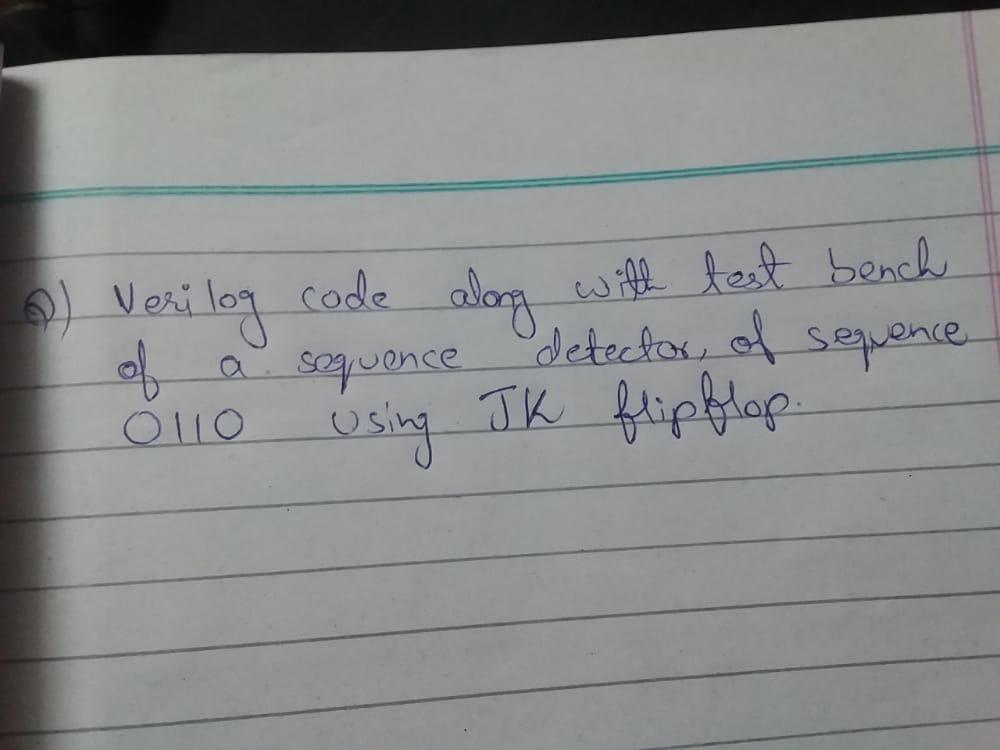 Q) Verilog code along with test bench
of a sequence detector, of sequence
0110 using JK flipflop.